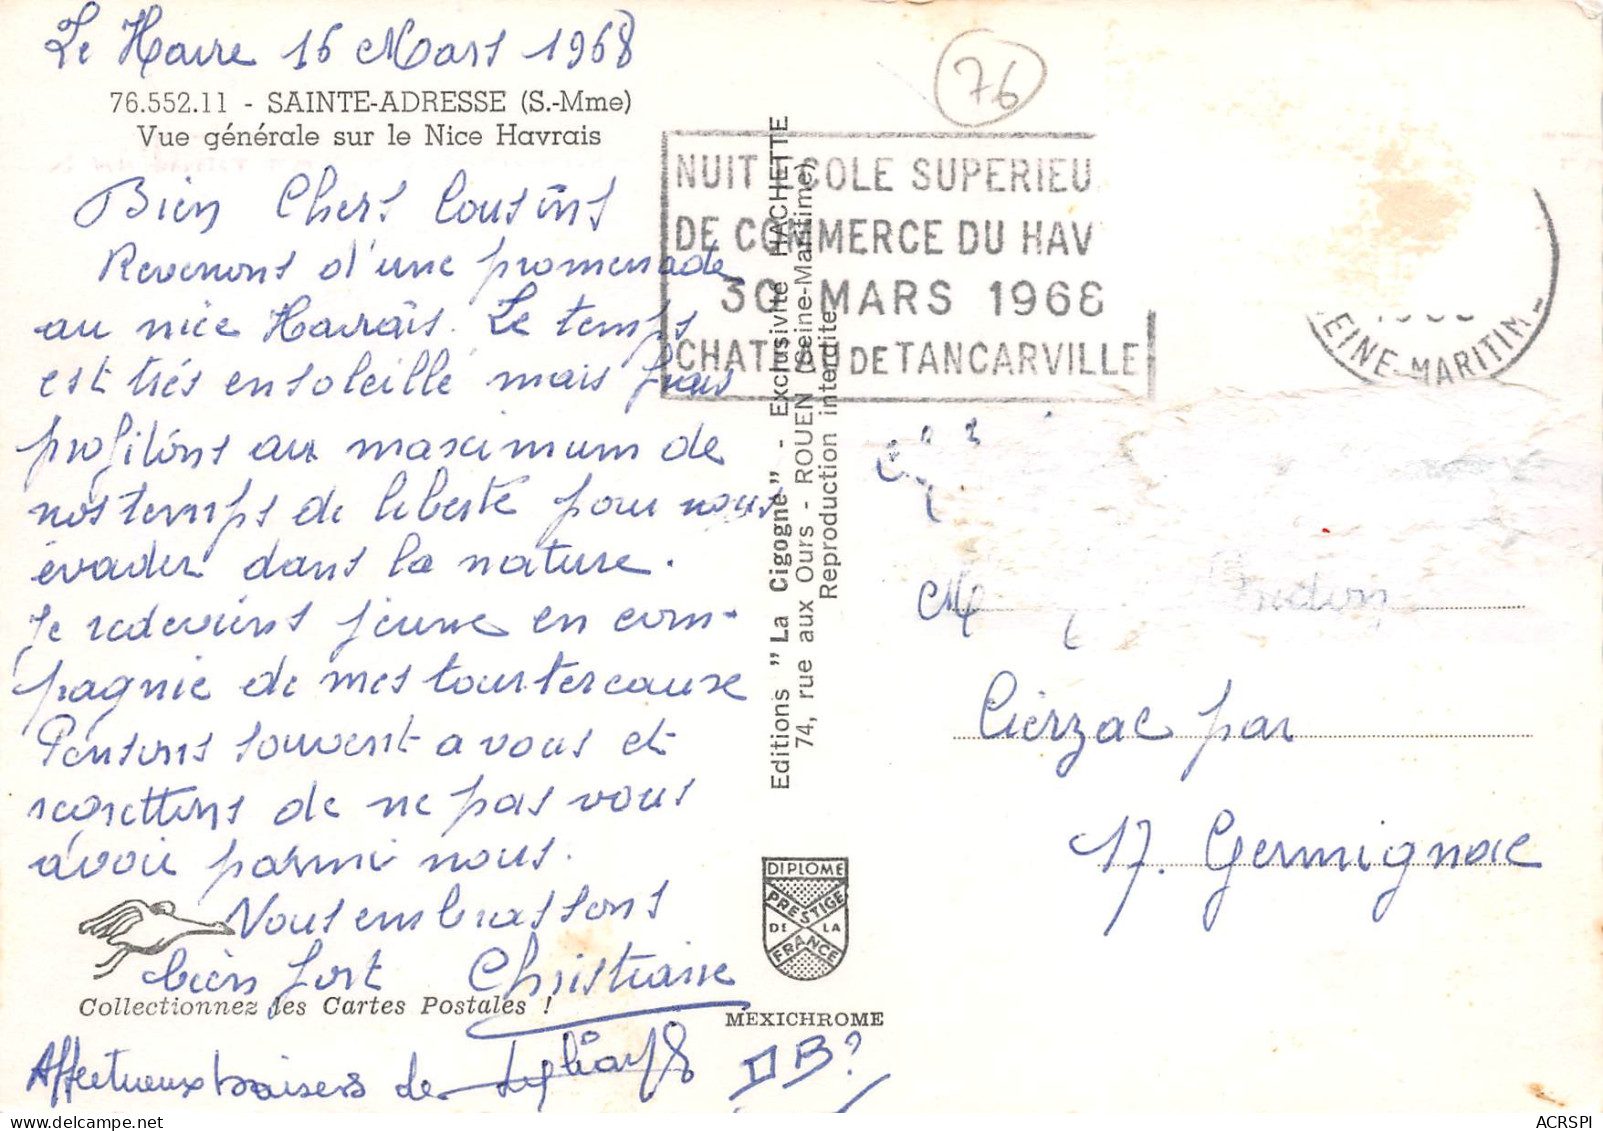 Le Havre 16 Mars 1968
76.552.11 - SAINTE-ADRESSE (S.-Mme)
Vue générale sur le Nice Havrais
Bien Chers Cousins
Revenons d'une promenade
au nice Havrais. Le temps
est très ensoleillé mais frais
profitons au maximum de
nos temps de liberté pour nous
évader dans la nature.
Je redeviens jeune en com-
pagnie de mes tourtereaux
Pensons souvent a vous et
regrettons de ne pas vous
avoir parmi nous.
Vous embrassons
bien fort Christiane
Collectionnez les Cartes Postales !
Affectueux baisers de
Editions "La Cigogne" - Exclusivité HACHETTE
74, rue aux Ours - ROUEN (Seine-Maritime)
Reproduction interdite
DIPLOME
PRESTIGE
DE LA
FRANCE
MEXICHROME
76
NUIT COLE SUPERIEU
DE COMMERCE DU HAV
30 MARS 1968
CHATEAU DE TANCARVILLE
EINE-MARITIM
M
Cierzac par
17. Germignac
ACRSPI